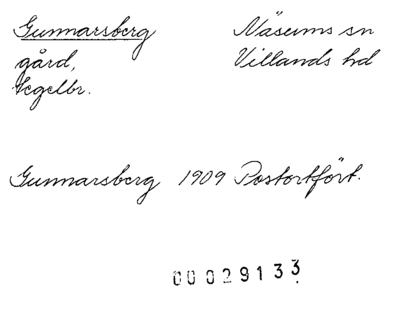 Gunnarsberg
gård,
Tegelbr.
Näsums sn
Villands hd
Gunnarsberg 1909 Postortfört.
00029133